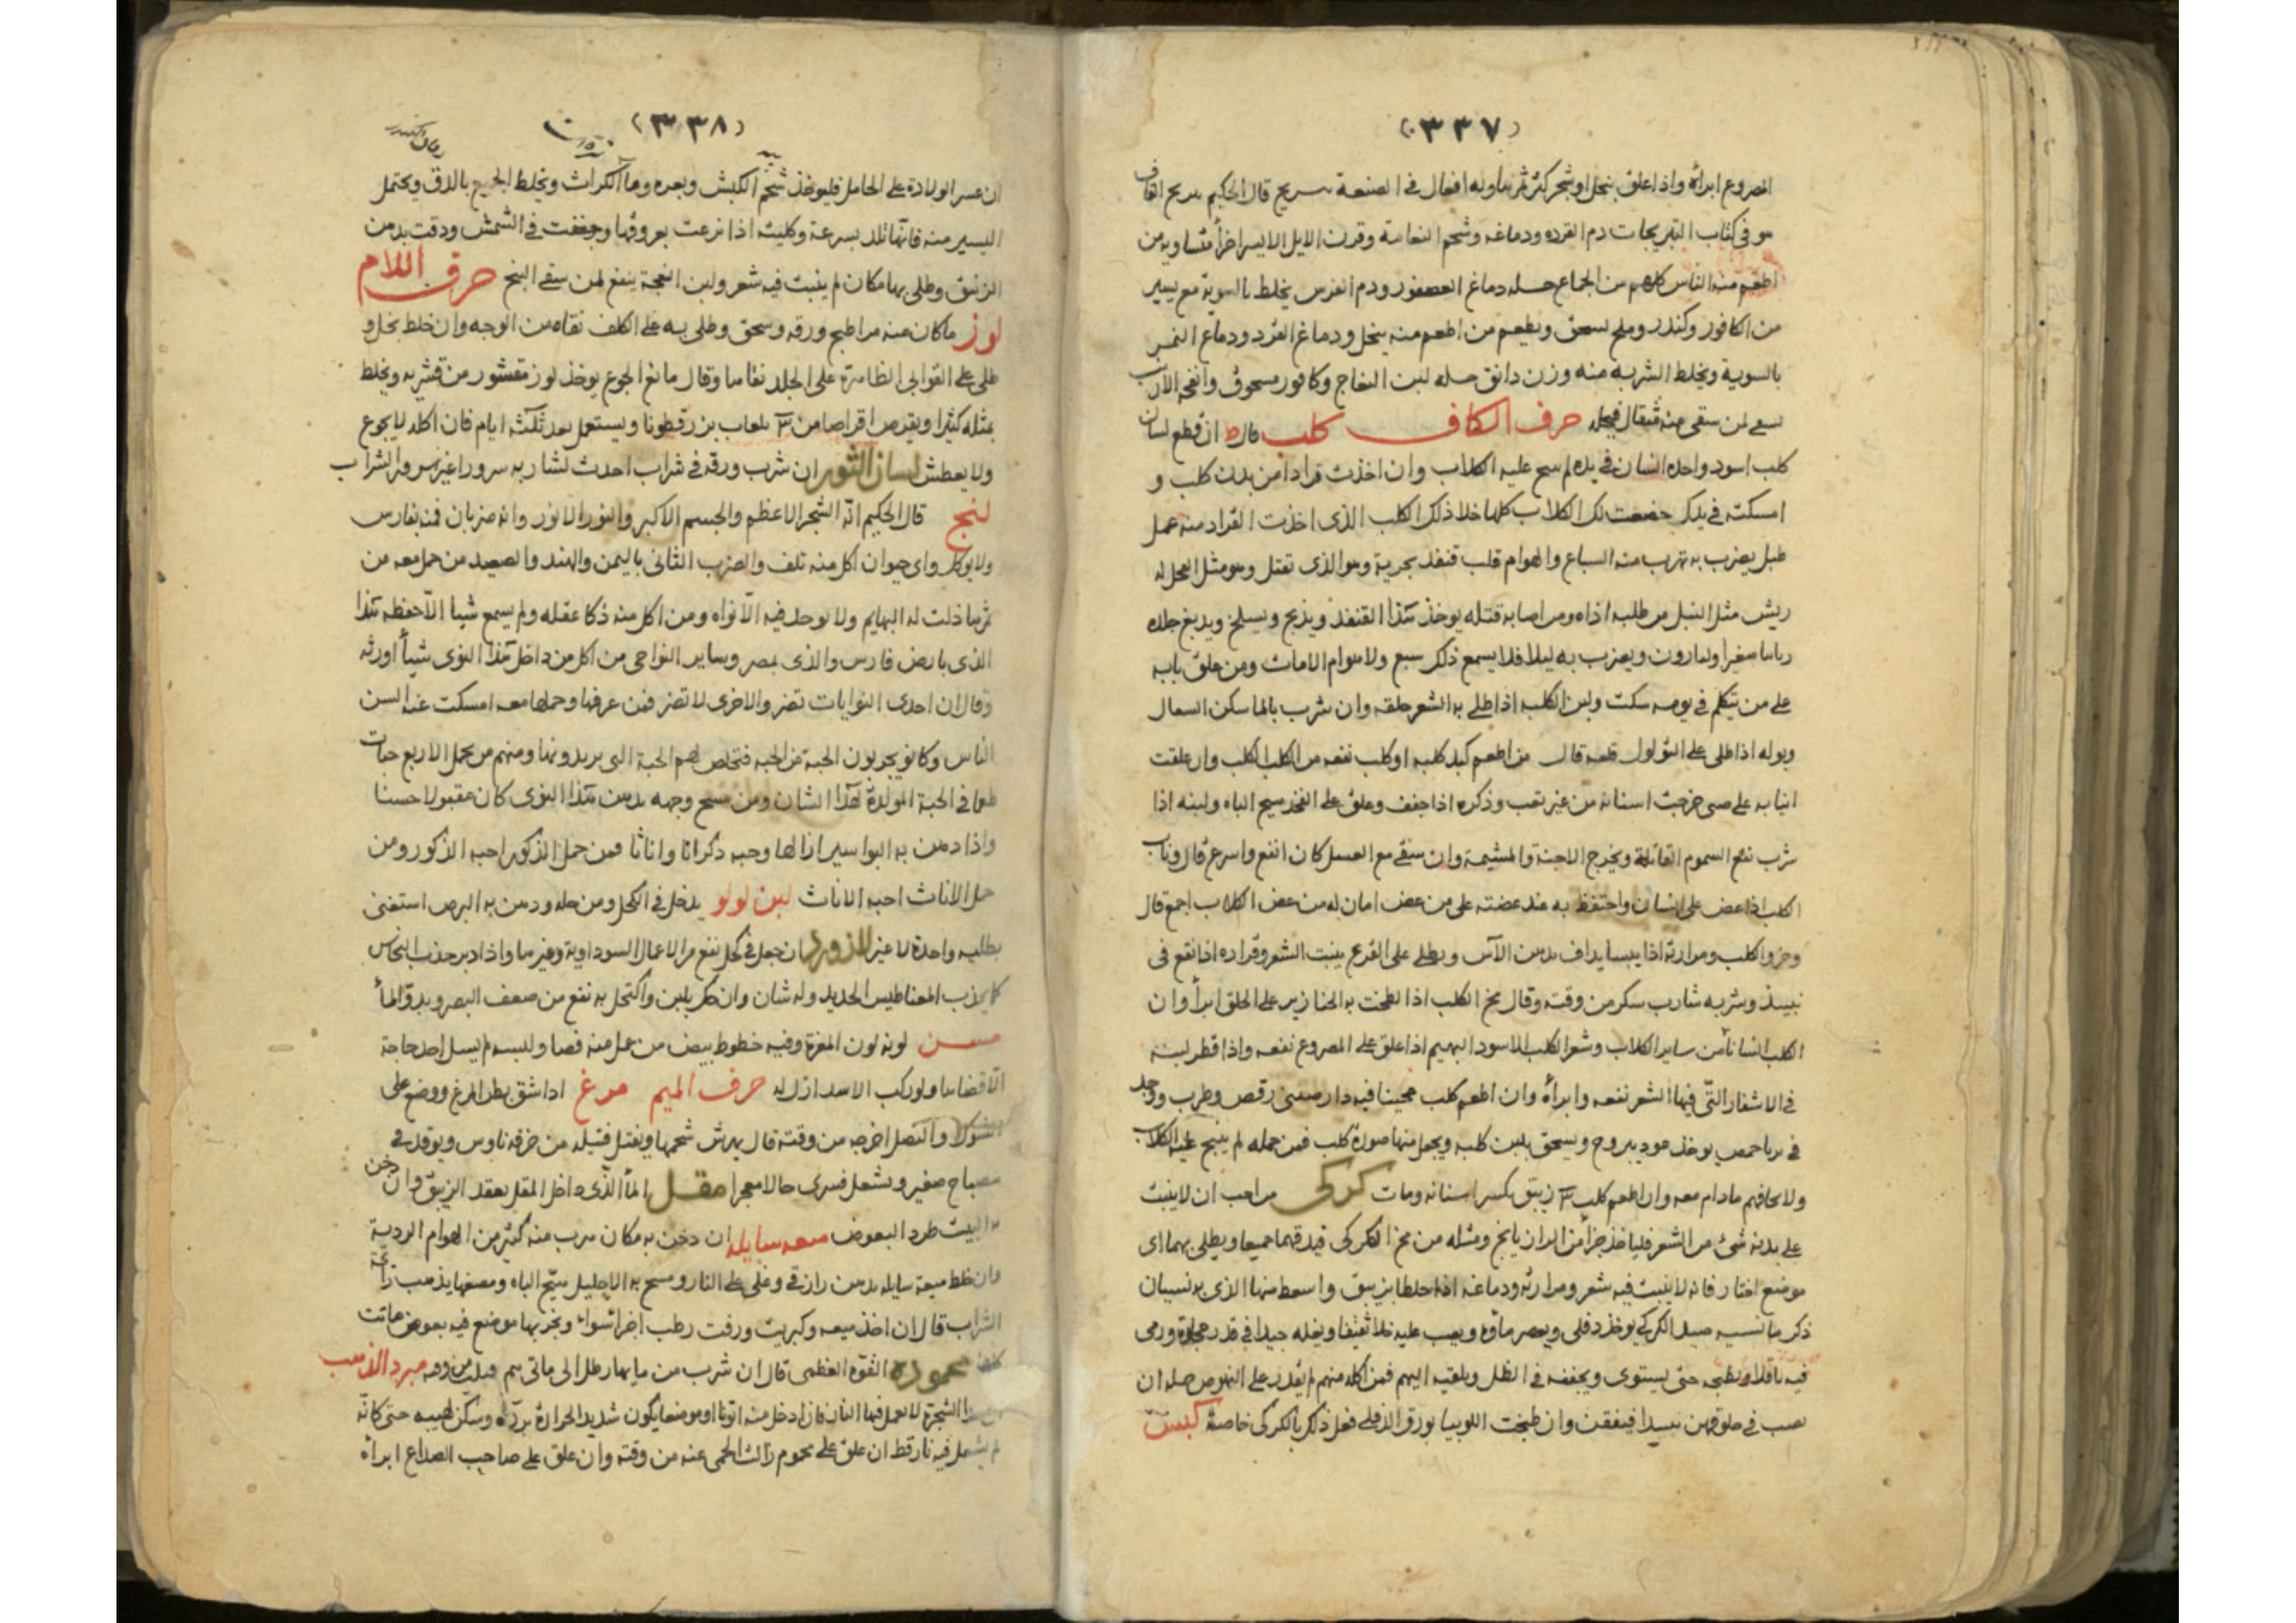 (٣٣٧)
المصروع ابرأه واذا علق بنخل او شجر كثر ثمرها وله افعال فى الصنعة قال الحكيم
هو فى كتاب التبريجات دم القرده ودماغه وشحم النعامة وقرن الايل الايسر اجزأ متساوية من
اطعم منه الناس كلهم من الجماع حله دماغ العصفور ودم الفرس يخلط بالسوية مع يسير
من الكافور وكندر وملح يسحق ويطعم من اطعم منه ينحل ودماغ القرد ودماغ
بالسوية ويخلط الشربة منه وزن دانق حله لبن النعاج وكافور مسحوق وانفحه الارنب
يسقى لمن سقى منه مثقال فيحله حرف الكاف كلب قال ان قطع لسان
كلب اسود واخذه انسان فى يده لم ينبح عليه الكلاب وان اخذت قرادا من بدن كلب و
امسكته فى يدك خضعت لك الكلاب كلها خلا ذلك الكلب الذى اخذت القراد منه عمل
طبل يضرب به تهرب منه السباع والهوام قلب قنفذ بحرية وهو الذى تقتل وهو مثل العجل له
ريش مثل النبل من طلبه اذاه ومن اصابه قتله يوخذ هذا القنفذ ويذبح ويسلخ ويدبغ جلده
ويضرب به ليلا فلا يسمع ذلك سبع ولا هوام الا مات ومن علق نابه
على من يتكلم فى نومه سكت ولبن الكلبة اذا طلى به الشعر حلقه وان شرب بالما سكن السعال
وبوله اذا طلى على الثولول قلعه قال من اطعم كبد كلبه او كلب نفعه من الكلب الكلب وان علقت
انيابه على صبى خرجت اسنانه من غير تعب وذكره اذا جفف وعلق على الفخذ هيج الباه ولبنه اذا
شرب نفع السموم القاتلة ويخرج الاجنة والمشيمة وان سقى مع العسل كان انفع واسرع قال وناب
الكلب اذا عض على انسان واحتفظ به عند عضته على من عض امان له من عض الكلاب اجمع قال
وخرو الكلب ومرارته اذا يبسا يداف بدهن الآس ويطلى على القرع ينبت الشعر وقراده اذا نقع فى
نبيذ وشربه شارب سكر من وقته وقال مخ الكلب اذا لطخت به الخنازير على الحلق ابرأ وان
الكلب انسانا من ساير الكلاب وشعر الكلب الاسود البهيم اذا علق على المصروع نفعه واذا قطر لبنه
فى الاشفار التى فيها الشعر نفعه وابرأه وان اطعم كلب عجينا فيه دارصينى رقص وطرب ووجد
يوخذ عود يبروح ويسحق بلبن كلبه ويجعل منها صورة كلب فمن حمله لم ينبح عليه الكلاب
ولا يخافهم مادام معه وان اطعم كلب زيبق تكسر اسنانه ومات كركى من احب ان لا ينبت
على بدنه شئ من الشعر فليأخذ جزأ من ومثله من مخ الكركى فيدقهما جميعا ويطلى بهما اى
موضع اختار فانه لا ينبت فيه شعر ومرارته ودماغه اذا خلطا بزيبق واسعط منها الذى به نسيان
ذكر ما نسيه صيد الكركى يوخذ دفلى ويعصر مأوه ويصب عليه ويغله جيدا فى قدر ورمى
فيه باقلا ويطبخ حتى يستوى ويجففه فى الظل ويلقيه اليهم فمن اكله منهم لم يقدر على النهوض حله ان
يصب فى حلوقهن فيفقن وان طبخت اللوبيا بورق الدفلى فعل ذلك بالكركى خاصة كبش
(٣٣٨)
ان عسر الولادة على الحامل فليوخذ شحم الكبش وبعره وما الكراث ويخلط الجميع بالدق ويحتمل
اليسير منه فانها تلد بسرعة وكليته اذا نزعت بعروقها وجففت فى الشمش ودقت بدهن
الزنبق وطلى بها مكان لم ينبت فيه شعر ولبن النعجة ينفع لمن سقى البنج حرف اللام
لوز ما كان منه مرا طبخ ورقه وسحق وطلى به على الكلف نقاه من الوجه وان خلط بخل و
طلى على القوابى الظاهرة على الجلد نقاها وقال مانع الجوع يوخذ لوز مقشور من قشريه ويخلط
بمثله كثيرا ويقرص اقراصا من بلعاب بزرقطونا ويستعمل بعد ثلثه ايام فان اكله لا يجوع
ولا يعطش لسان الثور ان شرب ورقه فى شراب احدث لشاربه سرورا غير سرور الشراب
لنج قال الحكيم انه الشجر الاعظم والجسم الاكبر والنور الانور وانه ضربان فنه بفارس
ولا يوكل واى حيوان اكل منه تلف والضرب الثانى باليمن والهند والصعيد من حمل معه من
ثمرها ذلت له البهايم ولا توجد فيه الا نواه ومن اكل منه ذكا عقله ولم يسمع شيا الا حفظه هذا
الذى بارض فارس والذى بمصر وساير النواحى من اكل من داخل هذا النوى شيأ اورثه
وقال ان احدى النوايات تضر والاخرى لا تضر فمن عرفها وحملها معه امسكت عنه السن
الناس وكانو يجربون الحبة من الحبه فتخلص لهم الحبة التى يريدونها ومنهم من يحمل الاربع حبات
طعما فى الحبة المولدة لهذا الشان ومن مسح وجهه بدهن هذا النوى كان مقبولا حسنا
واذا دهن به البواسير ازالها وحبه ذكرانا واناثا فمن حمل الذكور احبه الذكور ومن
حمل الاناث احبه الاناث لبن لولو يدخل فى الكحل ومن حله ودهن به البرص استغنى
بطليه واحدة لا غير لازورد ان جعل فى كحل نفع من الاعمال السوداوية وغيرها واذا دبر جذب النحاس
كما يجذب المغناطيس الحديد وله شان وان حك بلبن واكتحل به نفع من ضعف البصر وبدو الماأ
لونه لون المغرة وفيه خطوط بيض من عمل منه فصا ولبسه لم يسل احد حاجة
الا قضاها ولو ركب الاسد لذل له حرف الميم مرغ اذا شق بطن المرغ ووضع على
الشوك والنصل اخرجه من وقته قال يهرش شحمها ويفتل فتيله من خرقة ناوس ويوقد فى
مصباح صغير ويشعل فترى حالا معجزا مقل الماأ الذى داخل المقل يعقد الزيبق وان دخن
به البيت طرد البعوض ميعه سايله ان دخن به مكان هرب منه كثير من الهوام الردية
وان خلط ميعة سايله بدهن رازقى وغلى على النار ومسح به الاحليل هيج الباه ومضغها يذهب رائحة
الشراب قال ان اخذ ميعه وكبريت وزفت رطب اجزأ سواء وبخر بها موضع فيه بعوض ماتت
كلها محموده القوة العظمى قال ان شرب من مايها رطل الى مأتى سم قتلت من وقته مبرد الذهب
هذا الشجرة لا تعمل فيها النار فان ادخل منه اتونا او موضعا يكون شديد الحرارة برده وسكن لهيبه حتى كانه
لم يشعل فيه نار قط ان علق على محموم زالت الحمى عنه من وقته وان علق على صاحب الصداع ابرأه